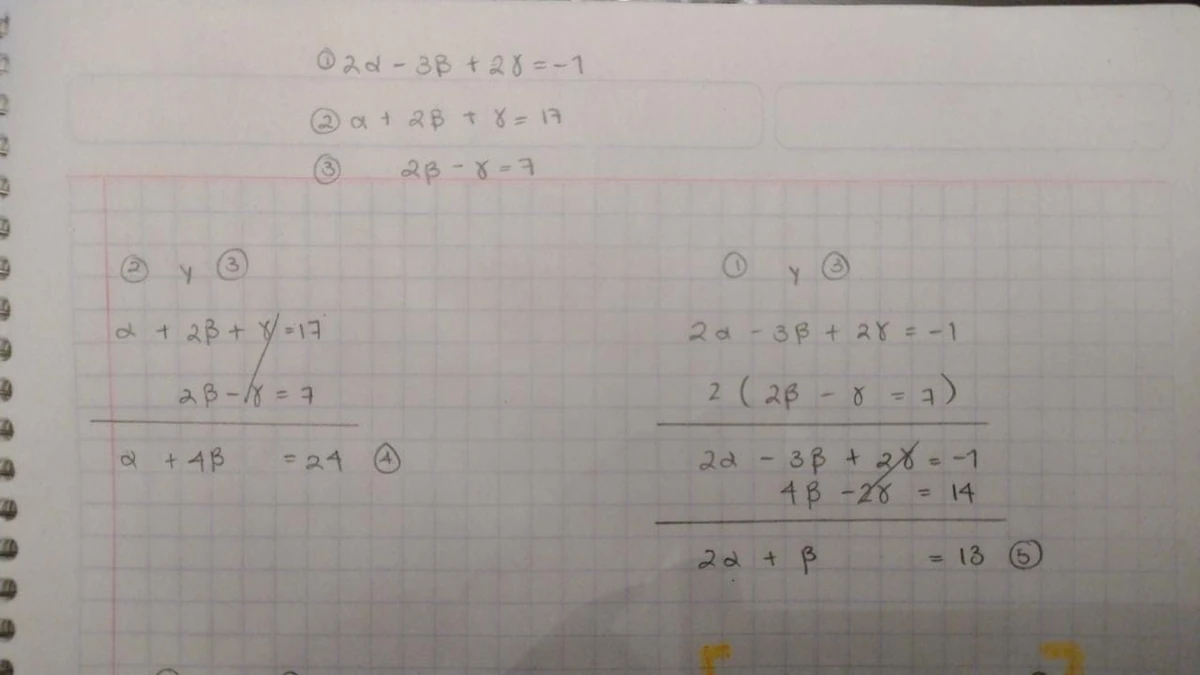 ① 2α - 3β + 2γ = -1
② α + 2β + γ = 17
③ 2β - γ = 7
② y ③
α + 2β + γ = 17
2β - γ = 7
α + 4β = 24 ④
① y ③
2α - 3β + 2γ = -1
2 ( 2β - γ = 7 )
2α - 3β + 2γ = -1
4β - 2γ = 14
2α + β = 13 ⑤